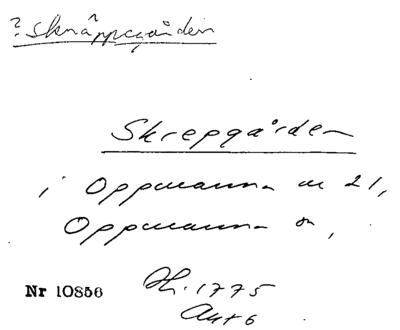 ? Sknåppegården
Skrepgården
i Oppmanna nr 21,
Oppmanna sn,
Nr 10856
Hi. 1775
Akt 6